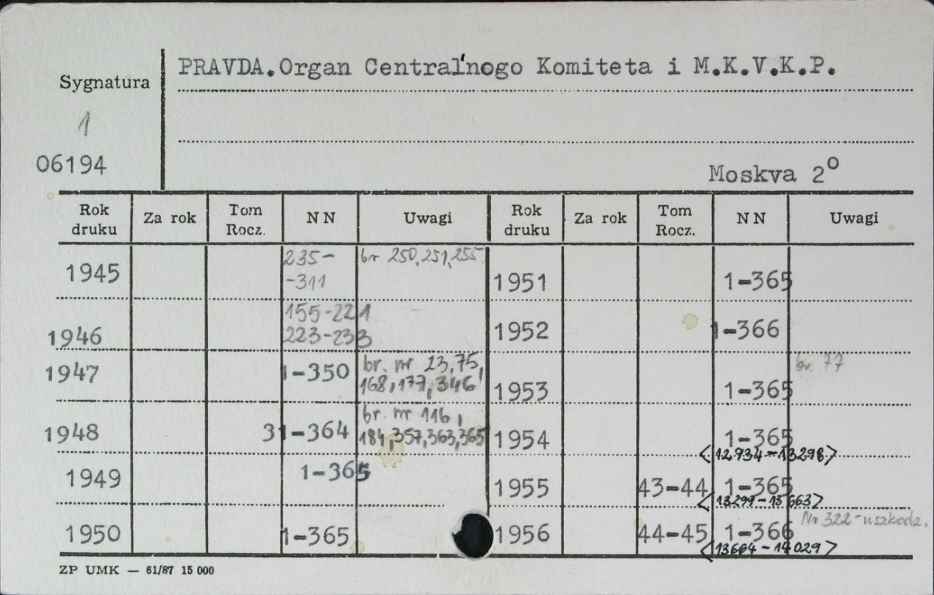 PRAVDA.Organ Central'nogo Komiteta i M.K.V.K.P.
Sygnatura
1
06194
Moskva 2°
Rok druku Za rok Tom Rocz. NN Uwagi Rok druku Za rok Tom Rocz. NN Uwagi
1945 235-
-311 br 250,251,255
1946 155-221
223-233
1947 1-350 br. nr 23,75,
168,177,346
1948 31-364 br. nr 116,
184,357,363,365
1949 1-365
1950 1-365
1951 1-365
1952 1-366
1953 1-365 br. 77
1954 1-365
<12.934-13298>
1955 43-44 1-365
<13299-13663>
1956 44-45 1-366 Nr 322-uszkodz.
<13664-14029>
ZP UMK — 61/87 15 000